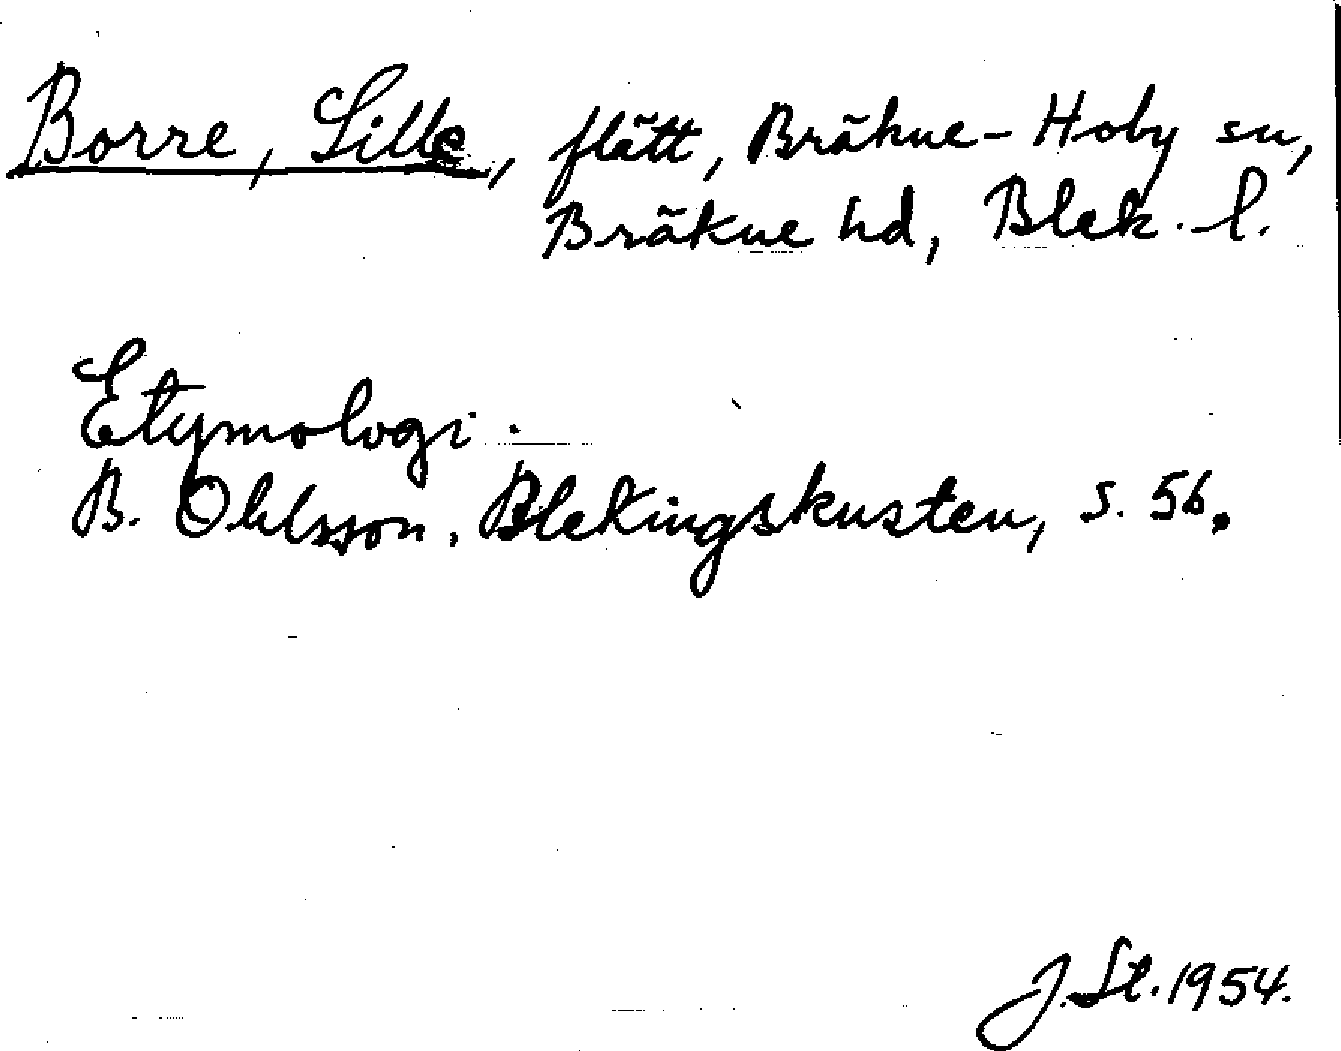 Borre, Lille, flätt, Bräkne-Hoby sn,
Bräkne hd, Blek. l.
Etymologi.
B. Ohlsson, Blekingskusten, s. 56.
J. St. 1954.